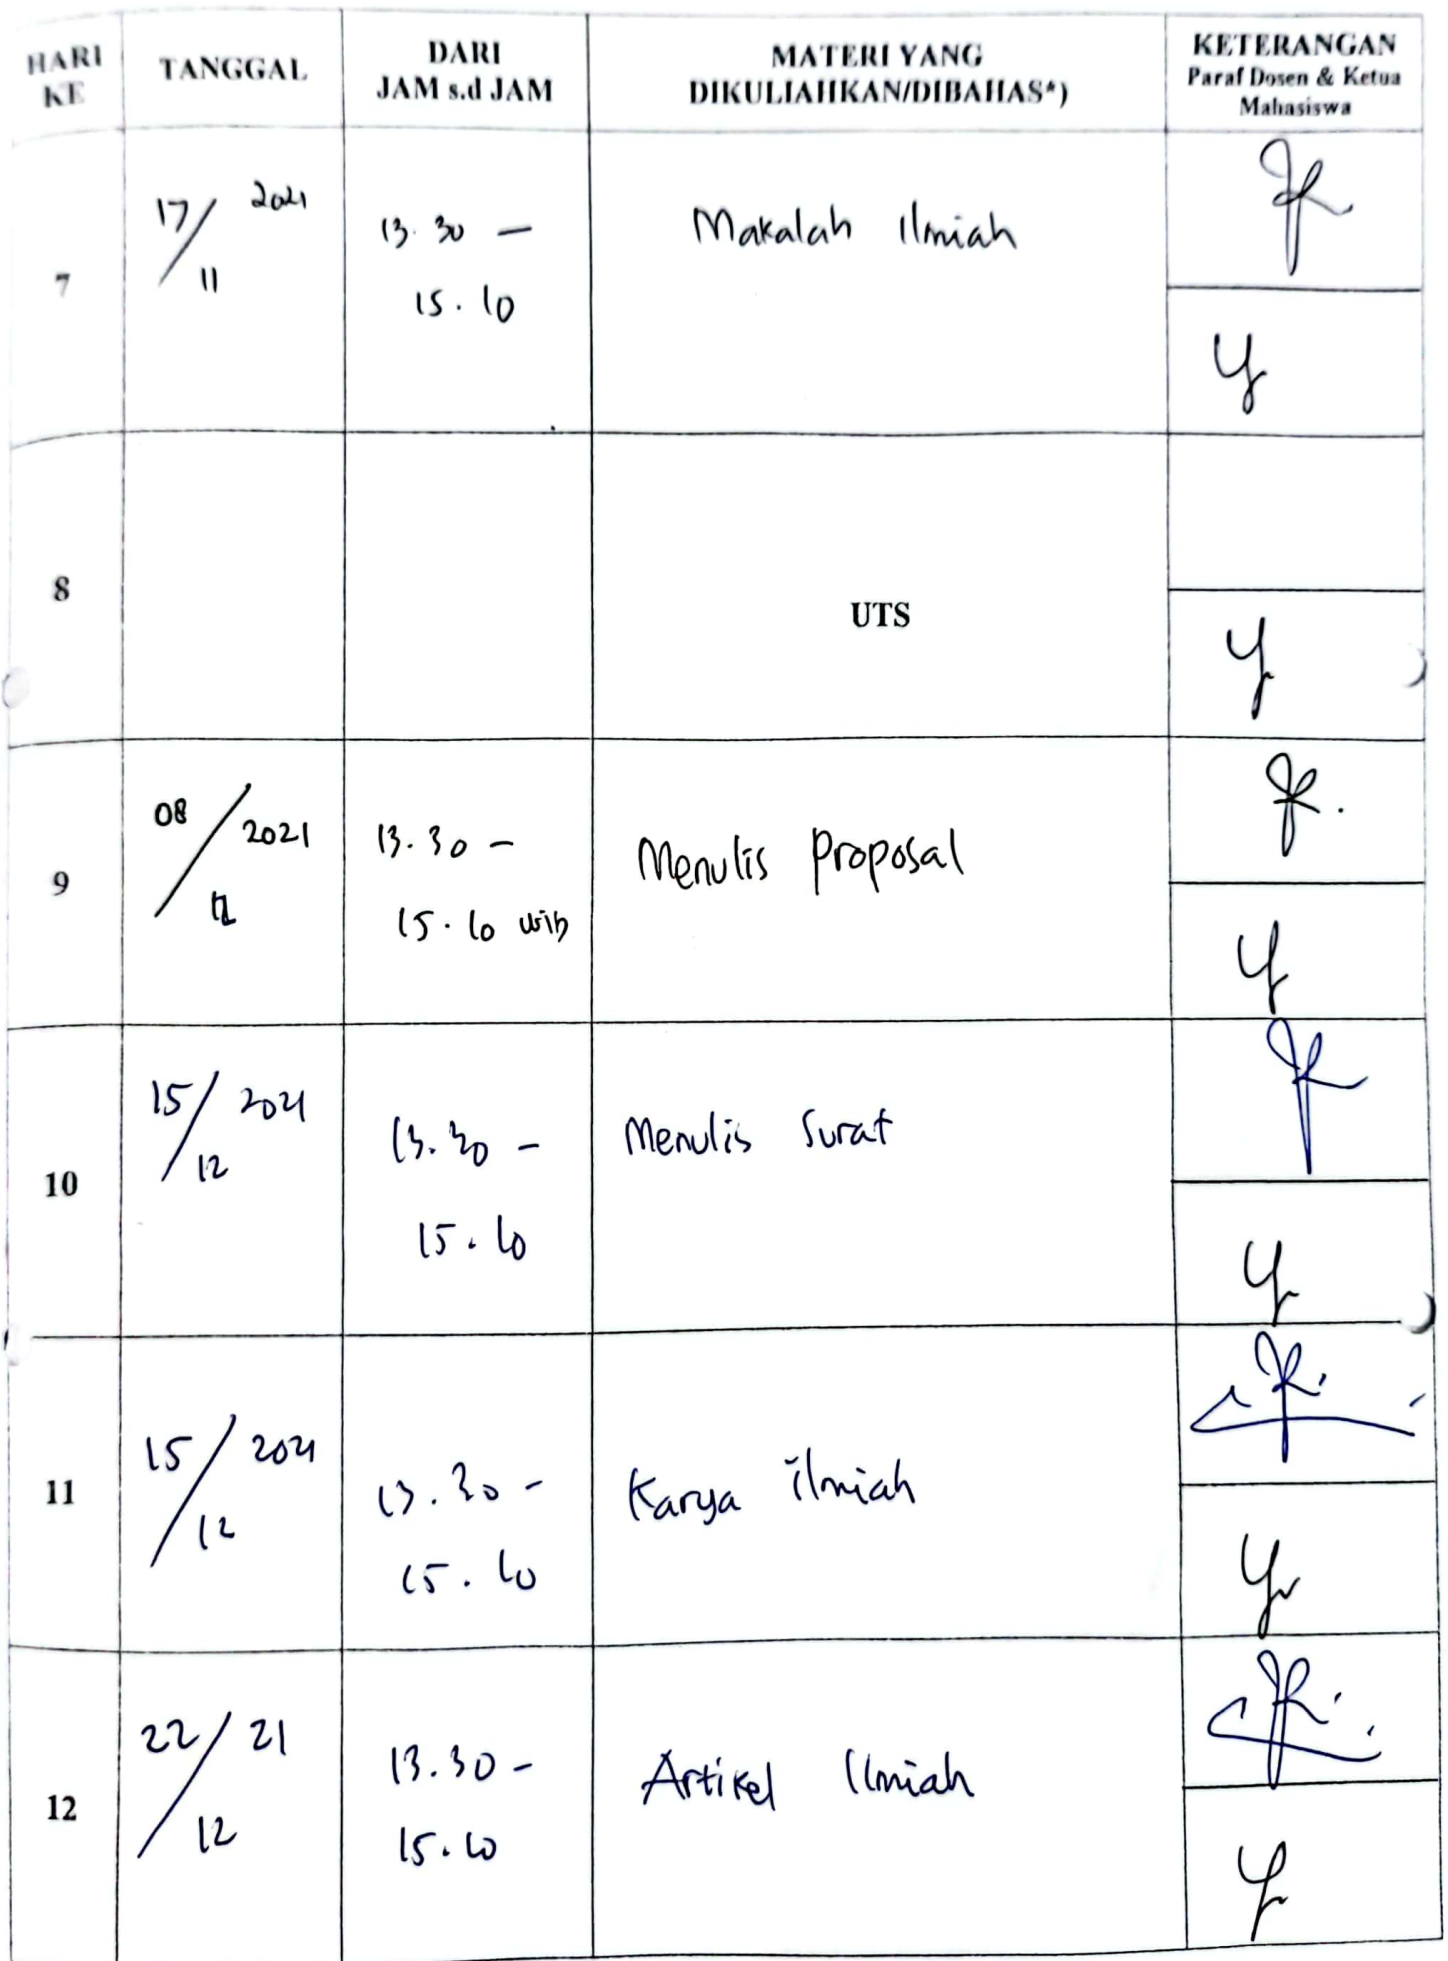 HARI KE
TANGGAL
DARI
JAM s.d JAM
MATERI YANG
DIKULIAHKAN/DIBAHAS*)
KETERANGAN
Paraf Dosen & Ketua
Mahasiswa
7
17/11 2021
13.30 -
15.10
Makalah Ilmiah
8
UTS
9
08/12 2021
13.30 -
15.10 wib
Menulis Proposal
10
15/12 2021
13.30 -
15.10
Menulis Surat
11
15/12 2021
13.30 -
15.10
Karya ilmiah
12
22/12 21
13.30 -
15.10
Artikel Ilmiah